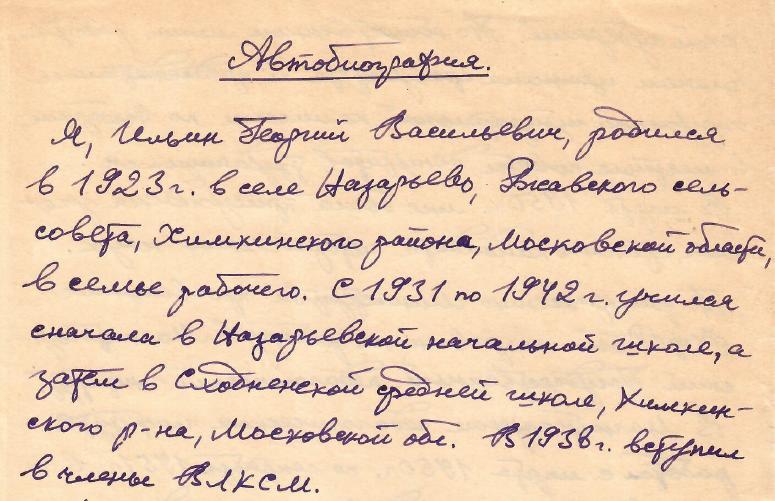 Автобиография.
Я, Ильин Георгий Васильевич, родился
в 1923 г. в селе Назарьево, Ржавского сель-
совета, Химкинского района, Московской области,
в семье рабочего. С 1931 по 1942 г. учился
сначала в Назарьевской начальной школе, а
затем в Сходненской средней школе, Химкин-
ского р-на, Московской обл. В 1938 г. вступил
в члены ВЛКСМ.